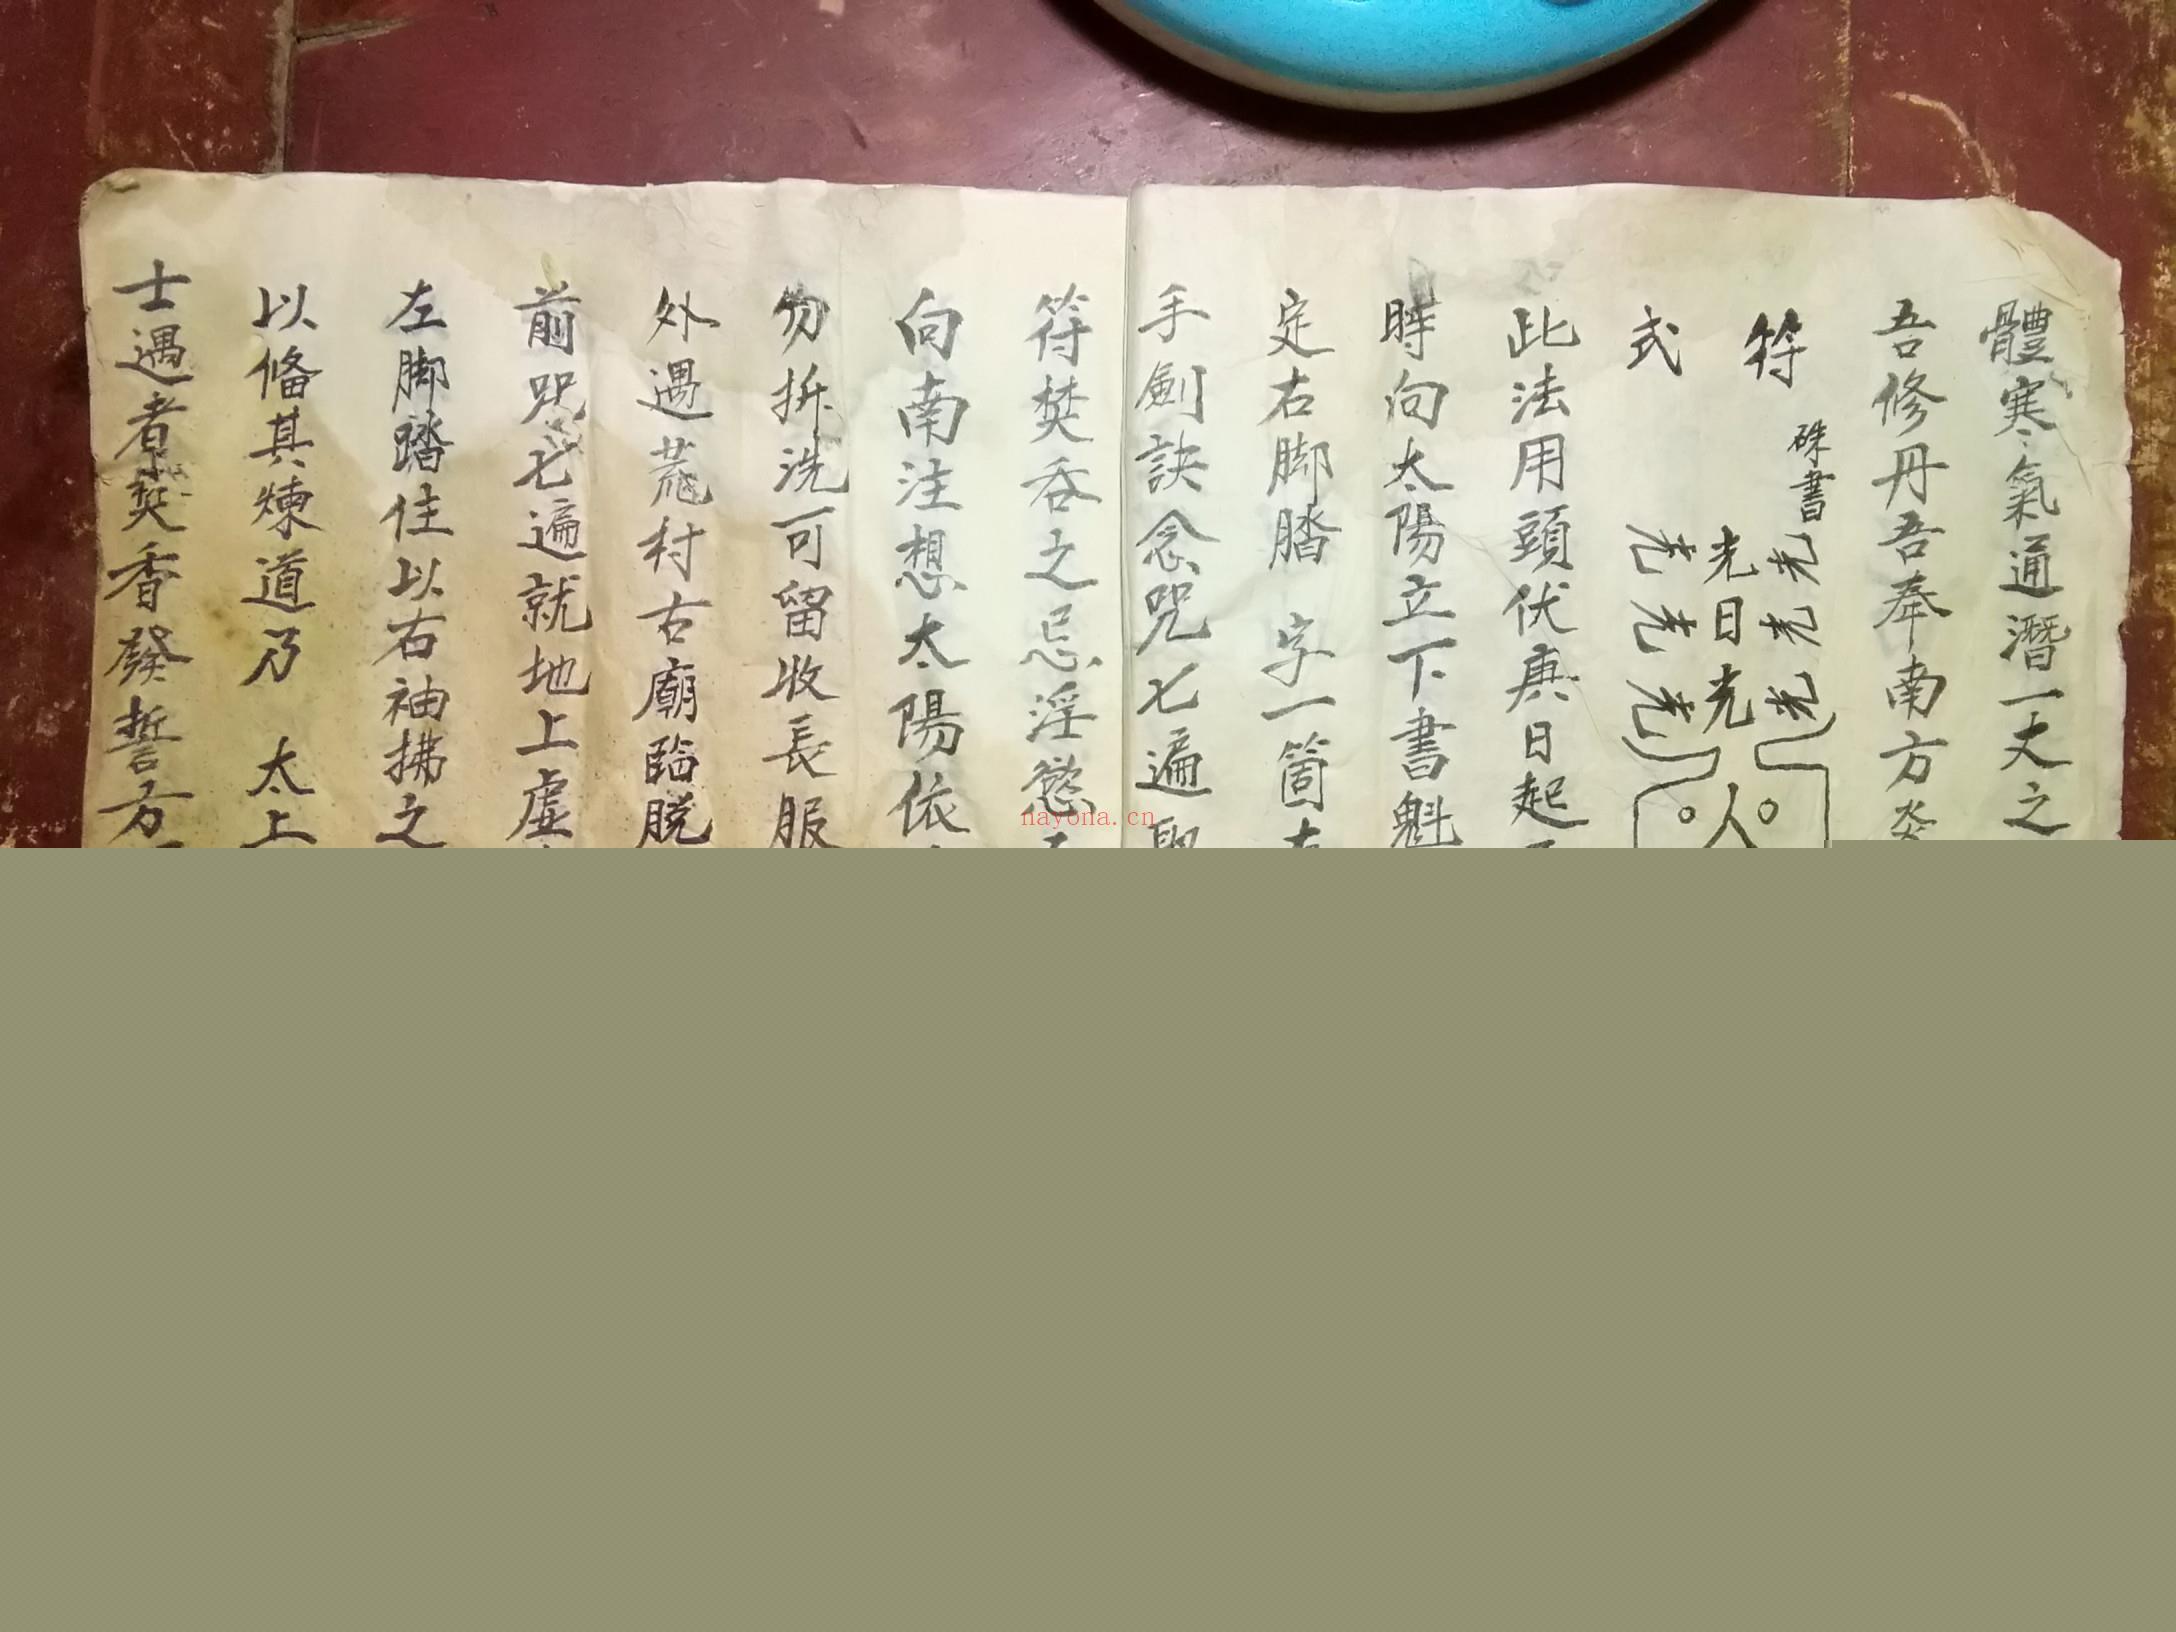 體寒氣通潛一丈之
吾修丹吾奉南方炎
符
硃書
光光光
光日光
光光光
人
式
此法用頭伏庚日起
時向太陽立下書魁
定右脚踏 字一箇左
手劍訣念咒七遍取
符焚吞之忌淫慾
向南注想太陽依
勿拆洗可留收長服
外遇荒村古廟臨脫
前咒七遍就地上虛
左脚踏住以右袖拂之
以俻其煉道乃 太上
士遇者焚香發誓方
nayona.cn